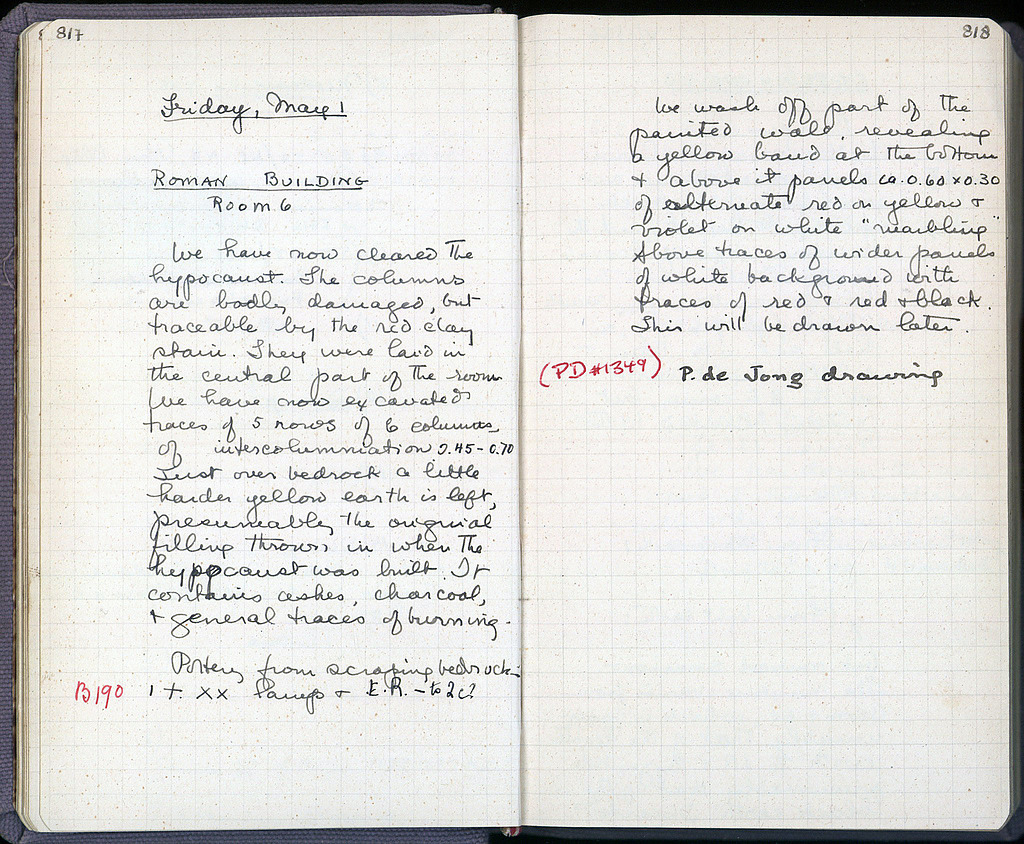 817
Friday, May 1
ROMAN BUILDING
Room 6
We have now cleared the
hypocaust. The columns
are badly damaged, but
traceable by the red clay
stain. They were laid in
the central part of the room
We have now excavated
traces of 5 rows of 6 columns,
of intercolumniation 0.45-0.70
Just over bedrock a little
harder yellow earth is left,
presumeably the original
filling thrown in when the
hypocaust was built. It
contains ashes, charcoal,
+ general traces of burning.
Pottery from scraping bedrock:
B190 1 t. XX lamps + E.R. - to 2c?
818
We wash off part of the
painted wall, revealing
a yellow band at the bottom
+ above it panels ca. 0.60 x 0.30
of alternate red on yellow +
violet on white "marbling"
Above traces of wider panels
of white background with
traces of red + red + black.
This will be drawn later.
(PD #1349) P. de Jong drawing